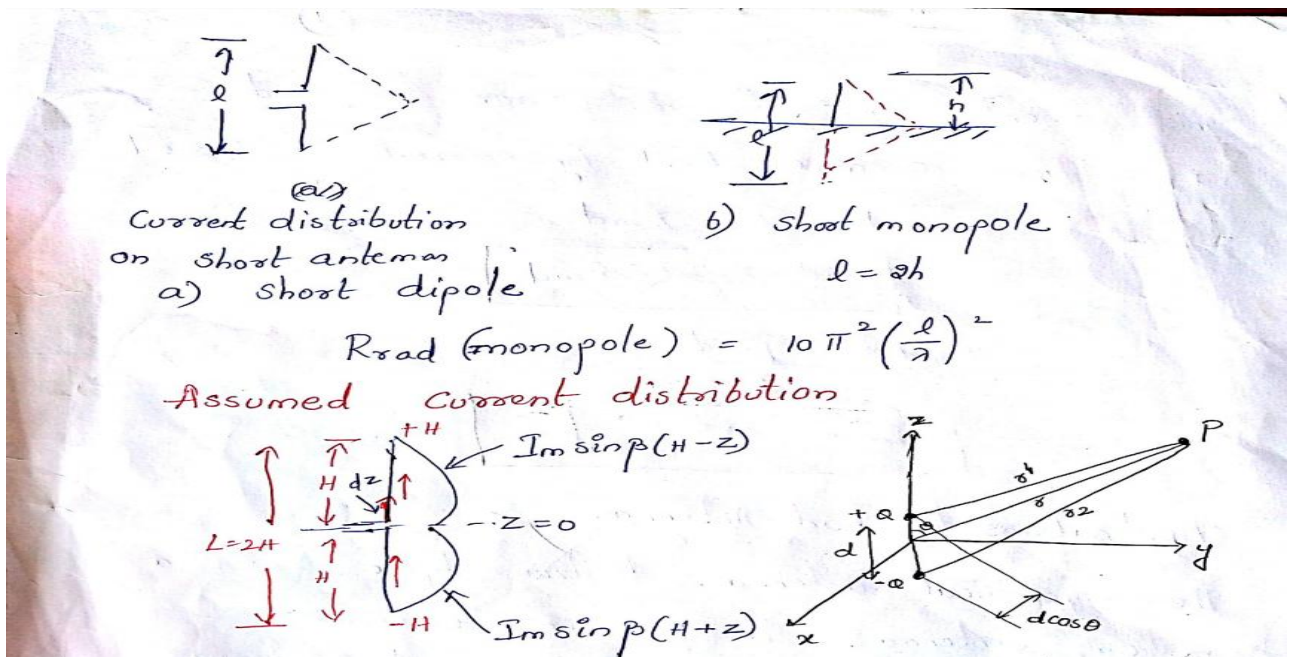 l
l
h
(a)
Current distribution
on short antennas
a) short dipole
b) short monopole
l = 2h
Rrad (monopole) = 10 π² (l/λ)²
Assumed current distribution
+H
Im sin β(H-Z)
H
dz
L=2H
--Z=0
H
-H
Im sin β(H+Z)
z
P
r1
r
r2
+Q
θ
d
-Q
y
x
dcosθ